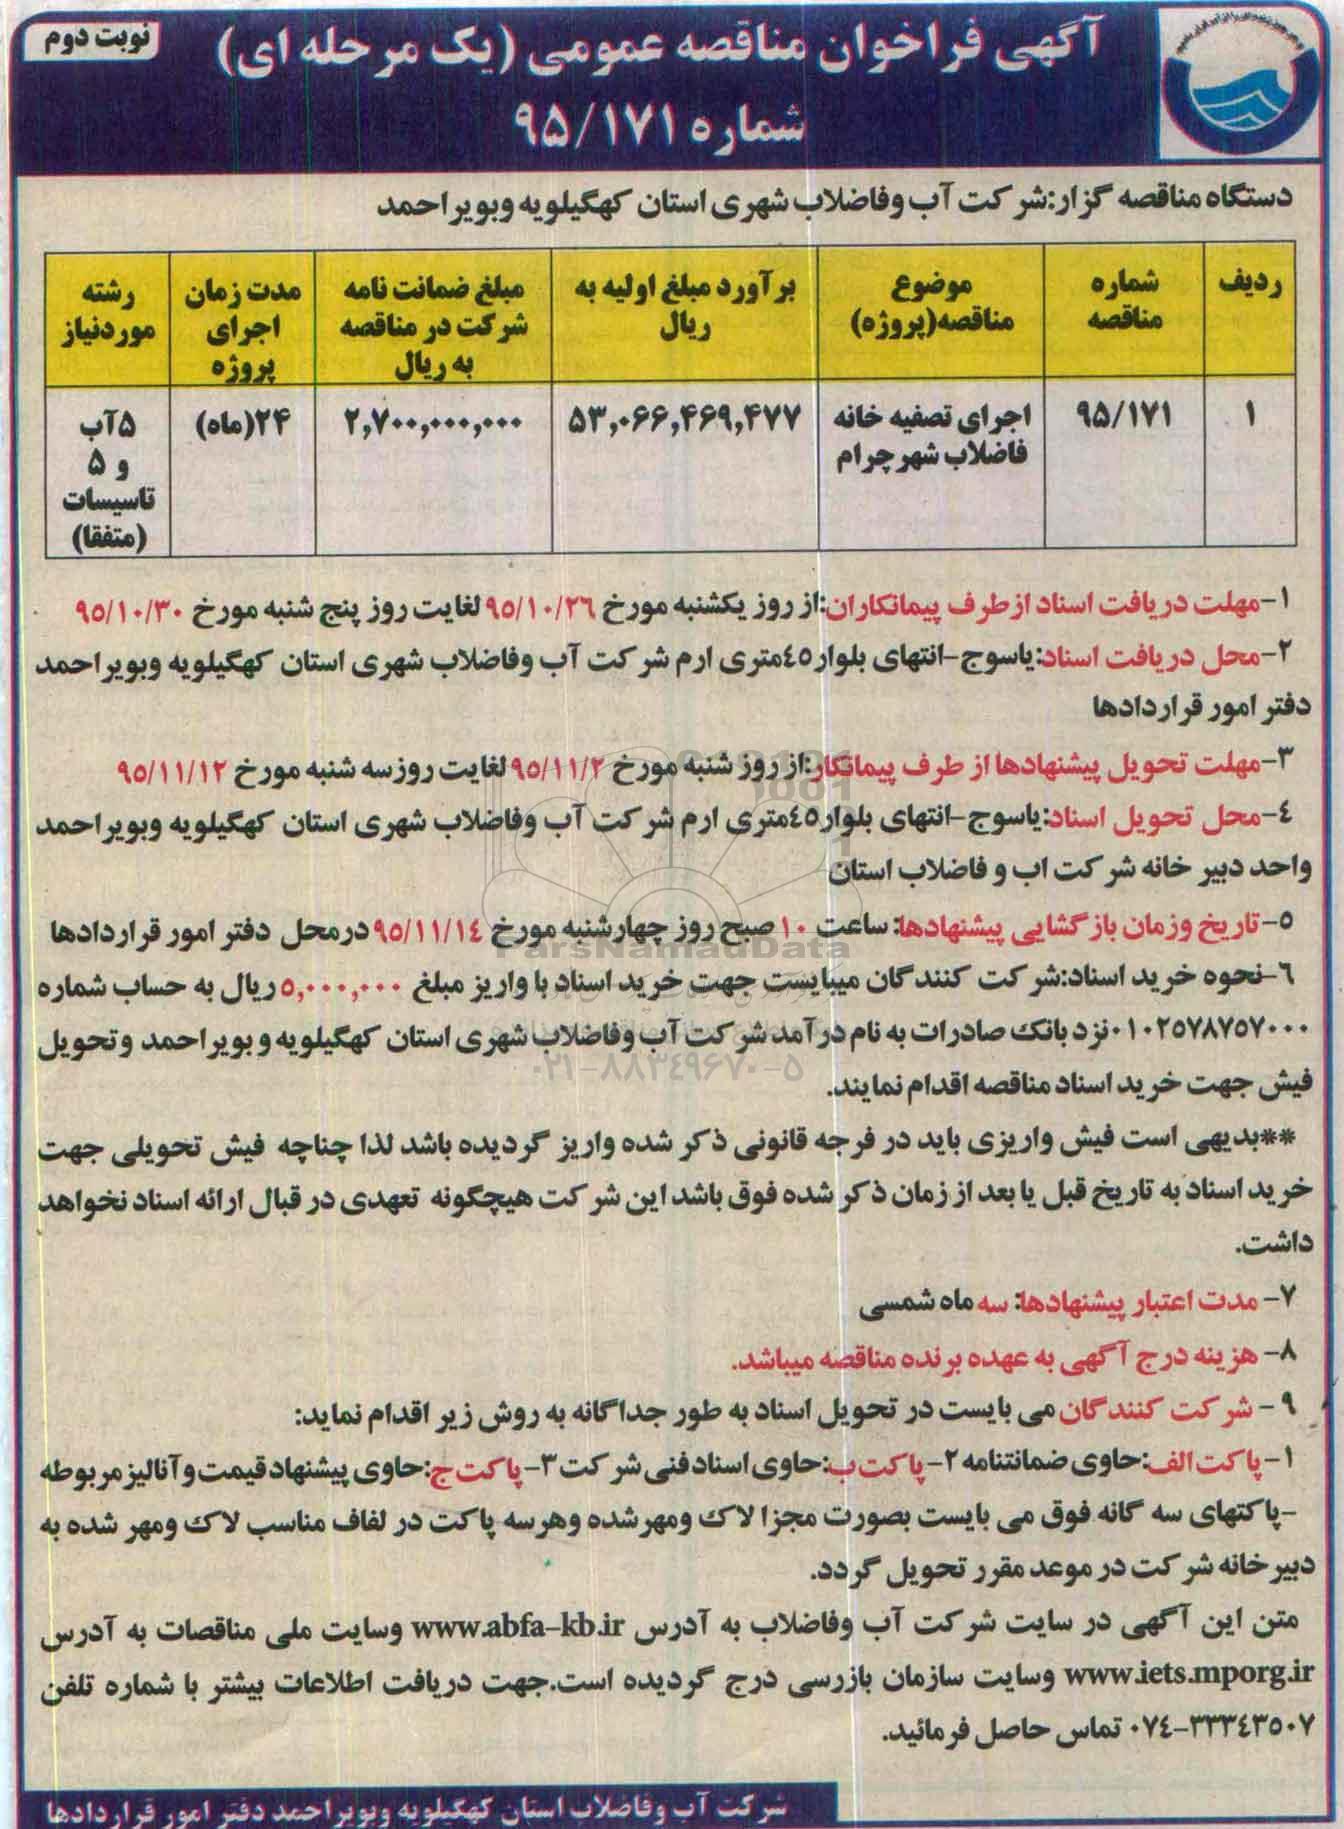 نوبت دوم
آگهی فراخوان مناقصه عمومی (یک مرحله ای)
شماره ۹۵/۱۷۱
دستگاه مناقصه گزار:شرکت آب وفاضلاب شهری استان کهگیلویه وبویراحمد
ردیف
شماره مناقصه
موضوع مناقصه(پروژه)
برآورد مبلغ اولیه به ریال
مبلغ ضمانت نامه شرکت در مناقصه به ریال
مدت زمان اجرای پروژه
رشته موردنیاز
۱
۹۵/۱۷۱
اجرای تصفیه خانه فاضلاب شهر چرام
۵۳,۰۶۶,۴۶۹,۴۷۷
۲,۷۰۰,۰۰۰,۰۰۰
۲۴(ماه)
۵آب و ۵ تاسیسات (متفقا)
۱-مهلت دریافت اسناد ازطرف پیمانکاران:از روز یکشنبه مورخ ۹۵/۱۰/۲۶ لغایت روز پنج شنبه مورخ ۹۵/۱۰/۳۰
۲-محل دریافت اسناد:یاسوج-انتهای بلوار٤٥متری ارم شرکت آب وفاضلاب شهری استان کهگیلویه وبویراحمد
دفتر امور قراردادها
۳-مهلت تحویل پیشنهادها از طرف پیمانکار:از روز شنبه مورخ ۹۵/۱۱/۲ لغایت روزسه شنبه مورخ ۹۵/۱۱/۱۲
٤-محل تحویل اسناد:یاسوج-انتهای بلوار٤٥متری ارم شرکت آب وفاضلاب شهری استان کهگیلویه وبویراحمد
واحد دبیر خانه شرکت اب و فاضلاب استان
۵-تاریخ وزمان بازگشایی پیشنهادها: ساعت ۱۰ صبح روز چهارشنبه مورخ ۹۵/۱۱/۱٤ درمحل دفتر امور قراردادها
٦-نحوه خرید اسناد:شرکت کنندگان میبایست جهت خرید اسناد با واریز مبلغ ۵,۰۰۰,۰۰۰ ریال به حساب شماره
۰۱۰۲۵۷۸۷۵۷۰۰۰ نزد بانک صادرات به نام درآمد شرکت آب وفاضلاب شهری استان کهگیلویه و بویراحمد وتحویل
فیش جهت خرید اسناد مناقصه اقدام نمایند.
**بدیهی است فیش واریزی باید در فرجه قانونی ذکر شده واریز گردیده باشد لذا چناچه فیش تحویلی جهت
خرید اسناد به تاریخ قبل یا بعد از زمان ذکر شده فوق باشد این شرکت هیچگونه تعهدی در قبال ارائه اسناد نخواهد
داشت.
۷- مدت اعتبار پیشنهادها: سه ماه شمسی
۸- هزینه درج آگهی به عهده برنده مناقصه میباشد.
۹- شرکت کنندگان می بایست در تحویل اسناد به طور جداگانه به روش زیر اقدام نماید:
۱-پاکت الف:حاوی ضمانتنامه ۲-پاکت ب:حاوی اسناد فنی شرکت ۳-پاکت ج:حاوی پیشنهاد قیمت و آنالیز مربوطه
-پاکتهای سه گانه فوق می بایست بصورت مجزا لاک ومهرشده وهرسه پاکت در لفاف مناسب لاک ومهر شده به
دبیرخانه شرکت در موعد مقرر تحویل گردد.
متن این آگهی در سایت شرکت آب وفاضلاب به آدرس www.abfa-kb.ir وسایت ملی مناقصات به آدرس
www.iets.mporg.ir وسایت سازمان بازرسی درج گردیده است.جهت دریافت اطلاعات بیشتر با شماره تلفن
۰۷٤-۳۳۳٤۳۵۰۷ تماس حاصل فرمائید.
شرکت آب وفاضلاب استان کهگیلویه وبویراحمد دفتر امور قراردادها
ParsNamadData
۰۲۱-۸۸۳٤۹٦۷۰-۵